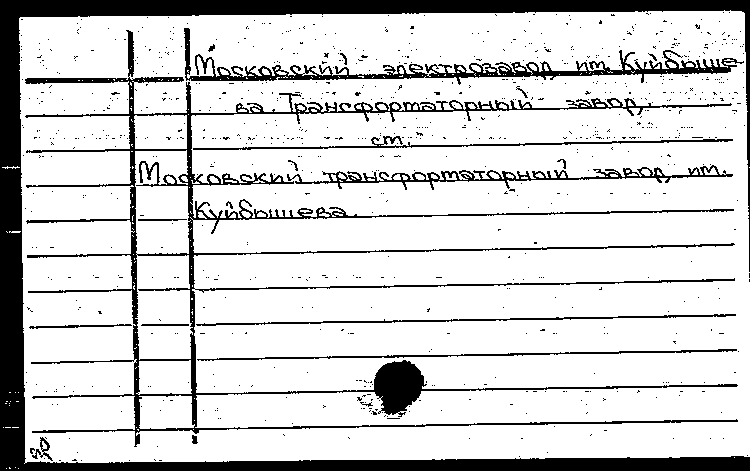 Московский электрозавод им. Куйбыше
ва. Трансформаторный завод,
ст.
Московский трансформаторный завод им.
Куйбышева.